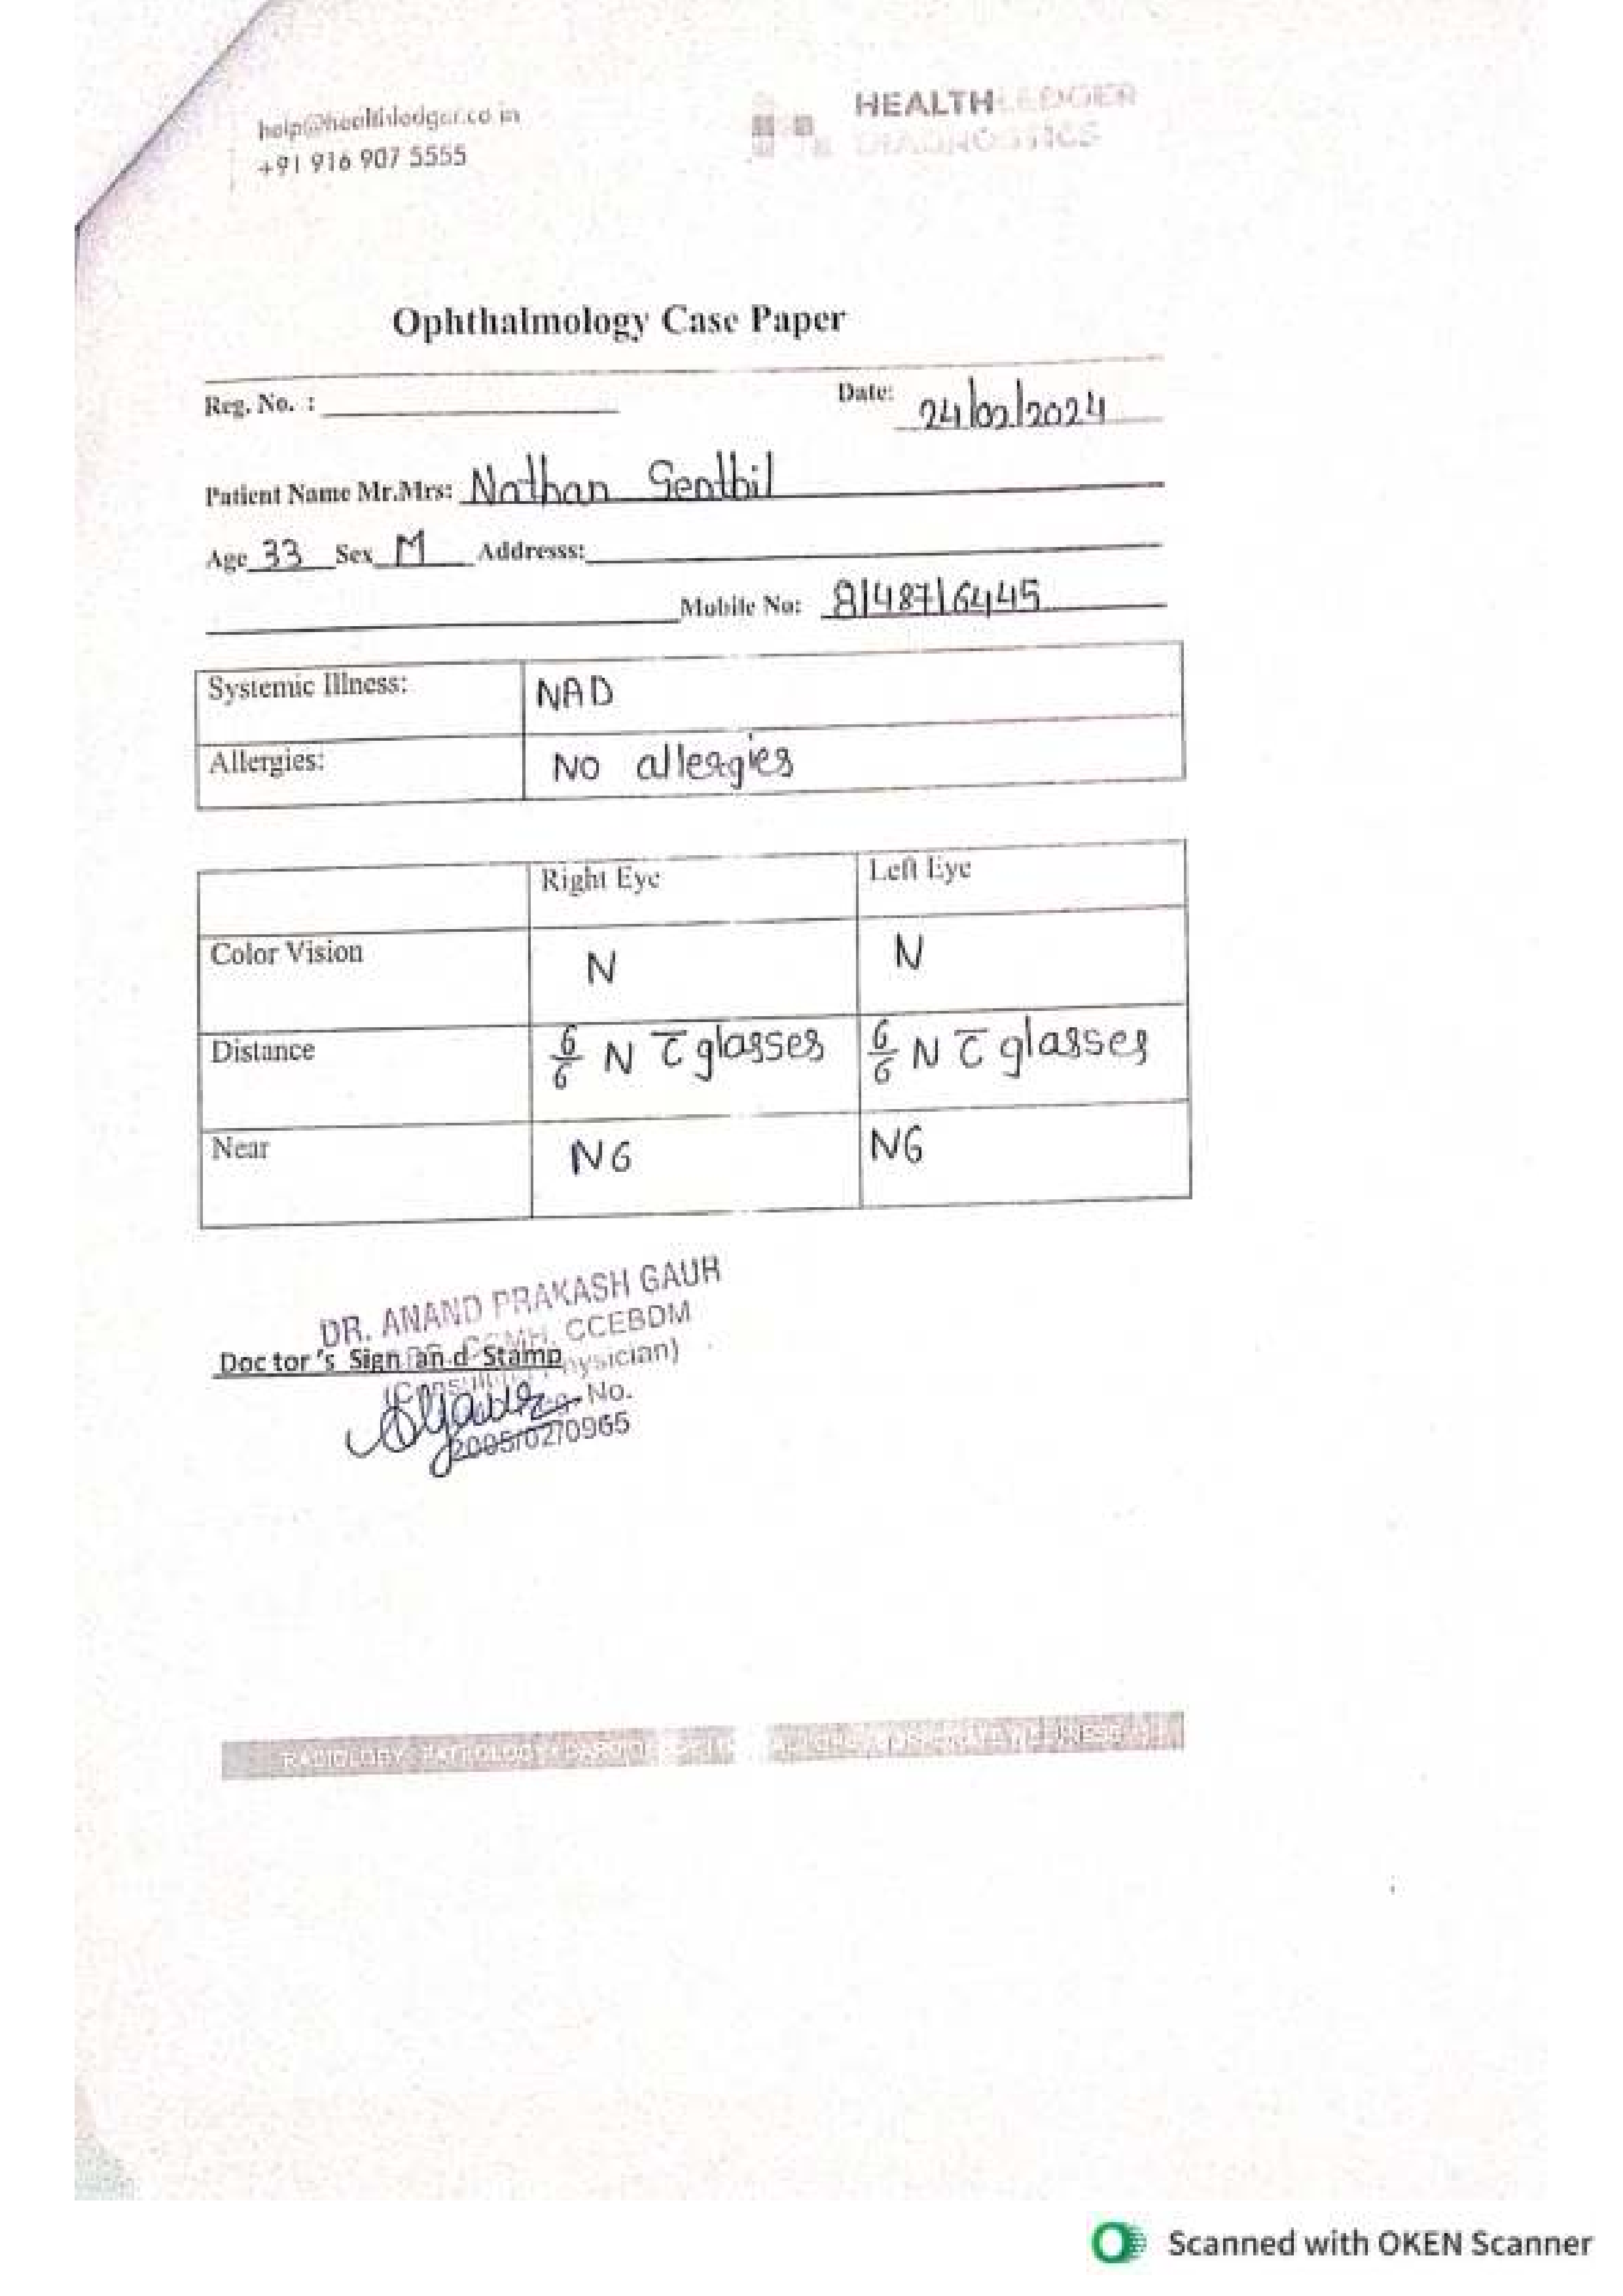 help@healthledger.co.in
+91 916 907 5555
HEALTHLEDGER
DIAGNOSTICS
Ophthalmology Case Paper
Reg. No. :
Date: 24/02/2024
Patient Name Mr.Mrs: Nathan Senthil
Age 33 Sex M Addresss:
Mobile No: 8148716445
Systemic Illness: NAD
Allergies: No allergies
Right Eye Left Eye
Color Vision N N
Distance 6/6 N c̄ glasses 6/6 N c̄ glasses
Near N6 N6
DR. ANAND PRAKASH GAUR
CCEBDM
Doctor's Sign and Stamp
No.
2005/02/0965
RADIOLOGY PATHOLOGY
Scanned with OKEN Scanner